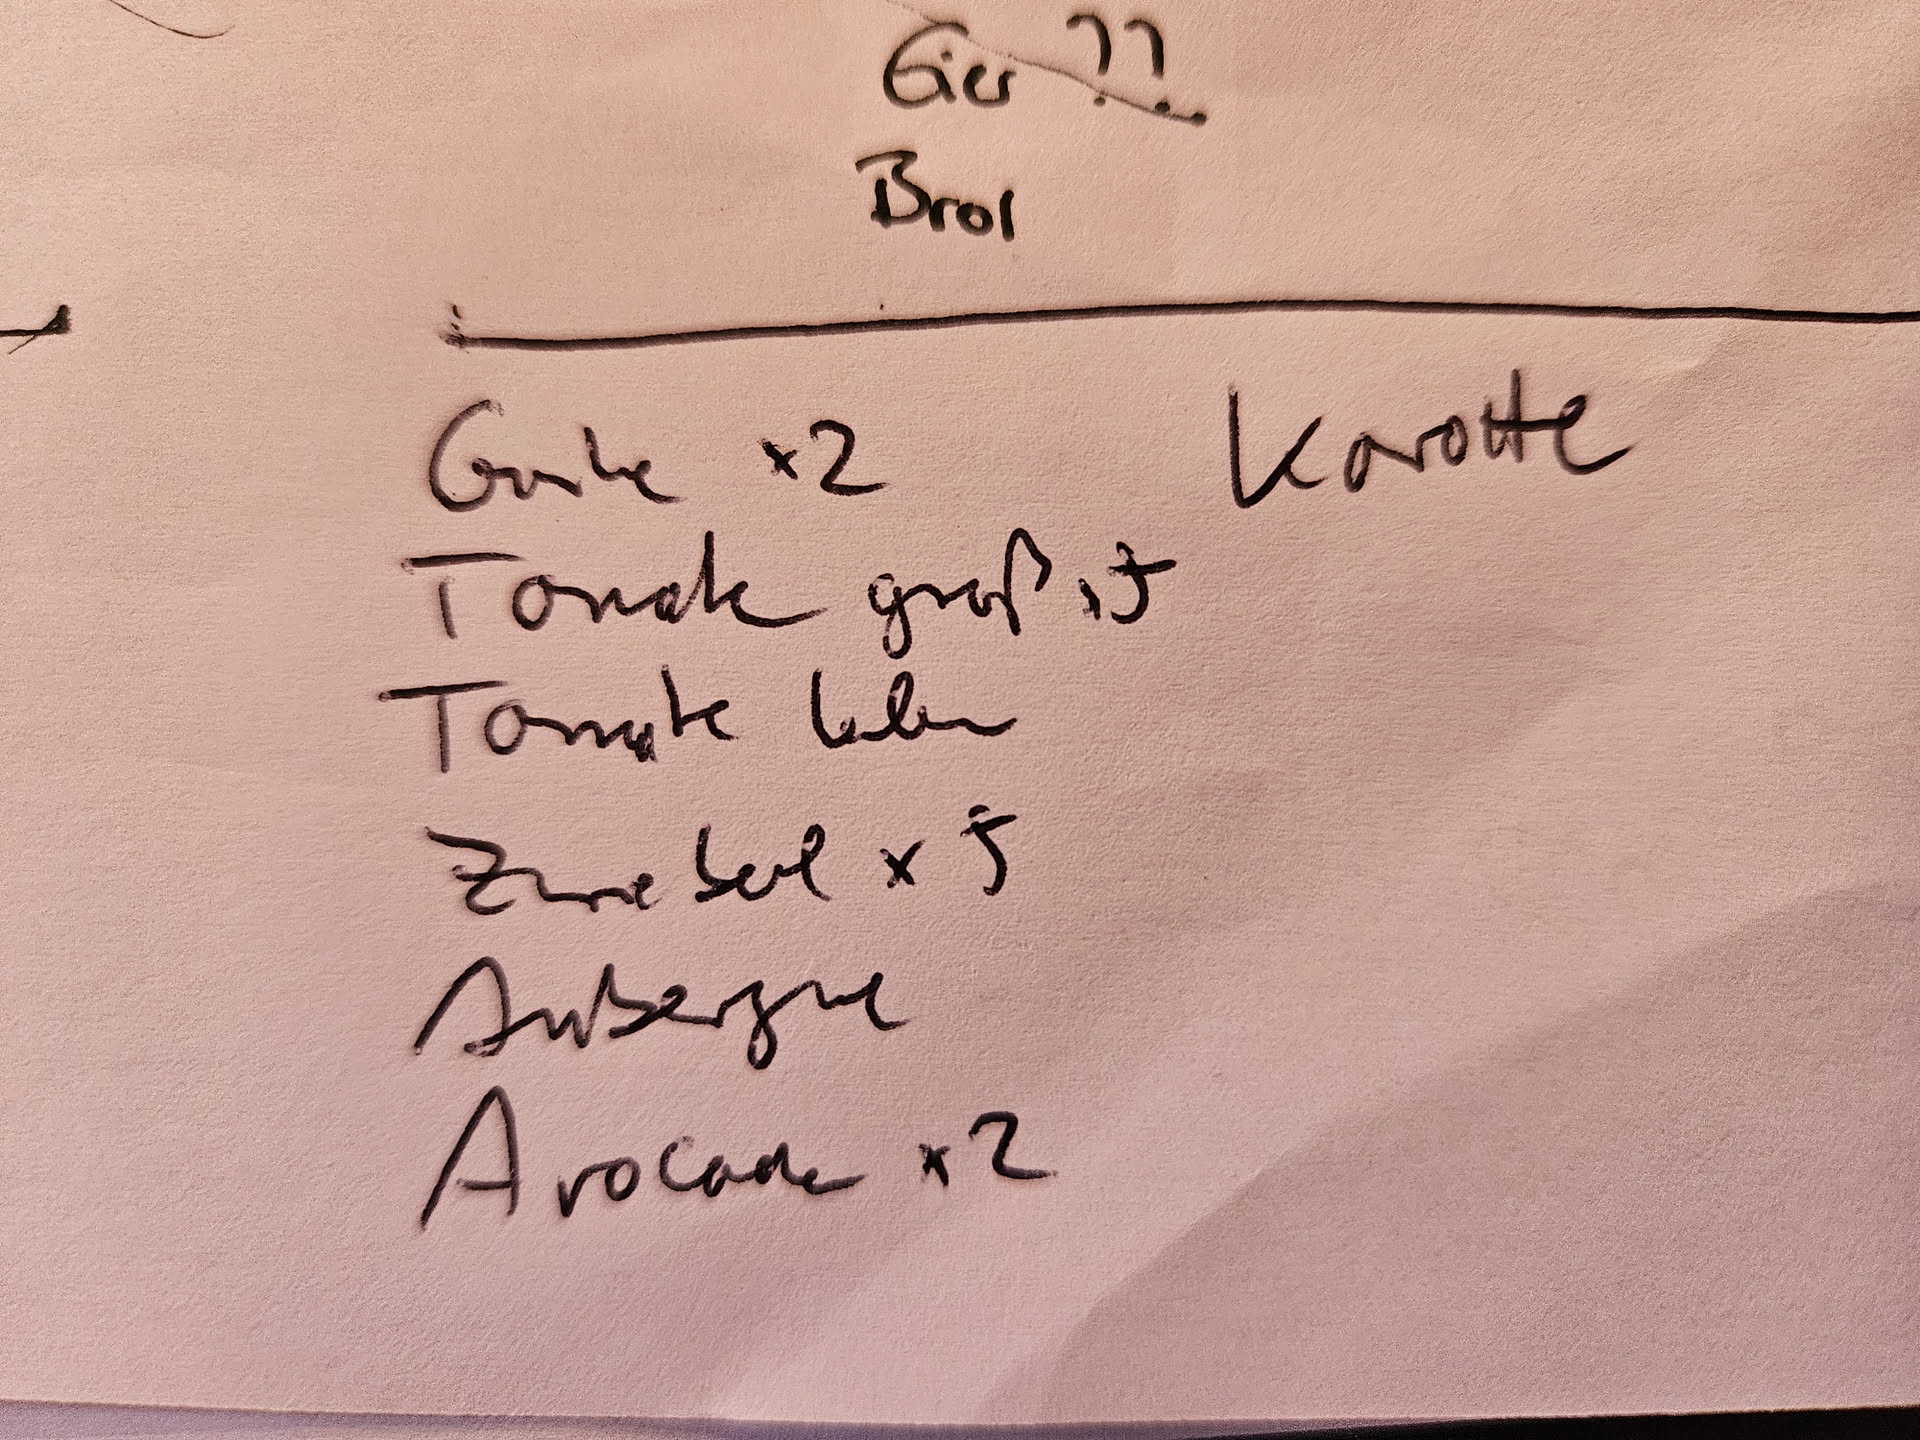 Eier ??
Brot
Gurke x2 Karotte
Tomate groß x5
Tomate klein
Zwiebel x5
Aubergine
Avocado x2